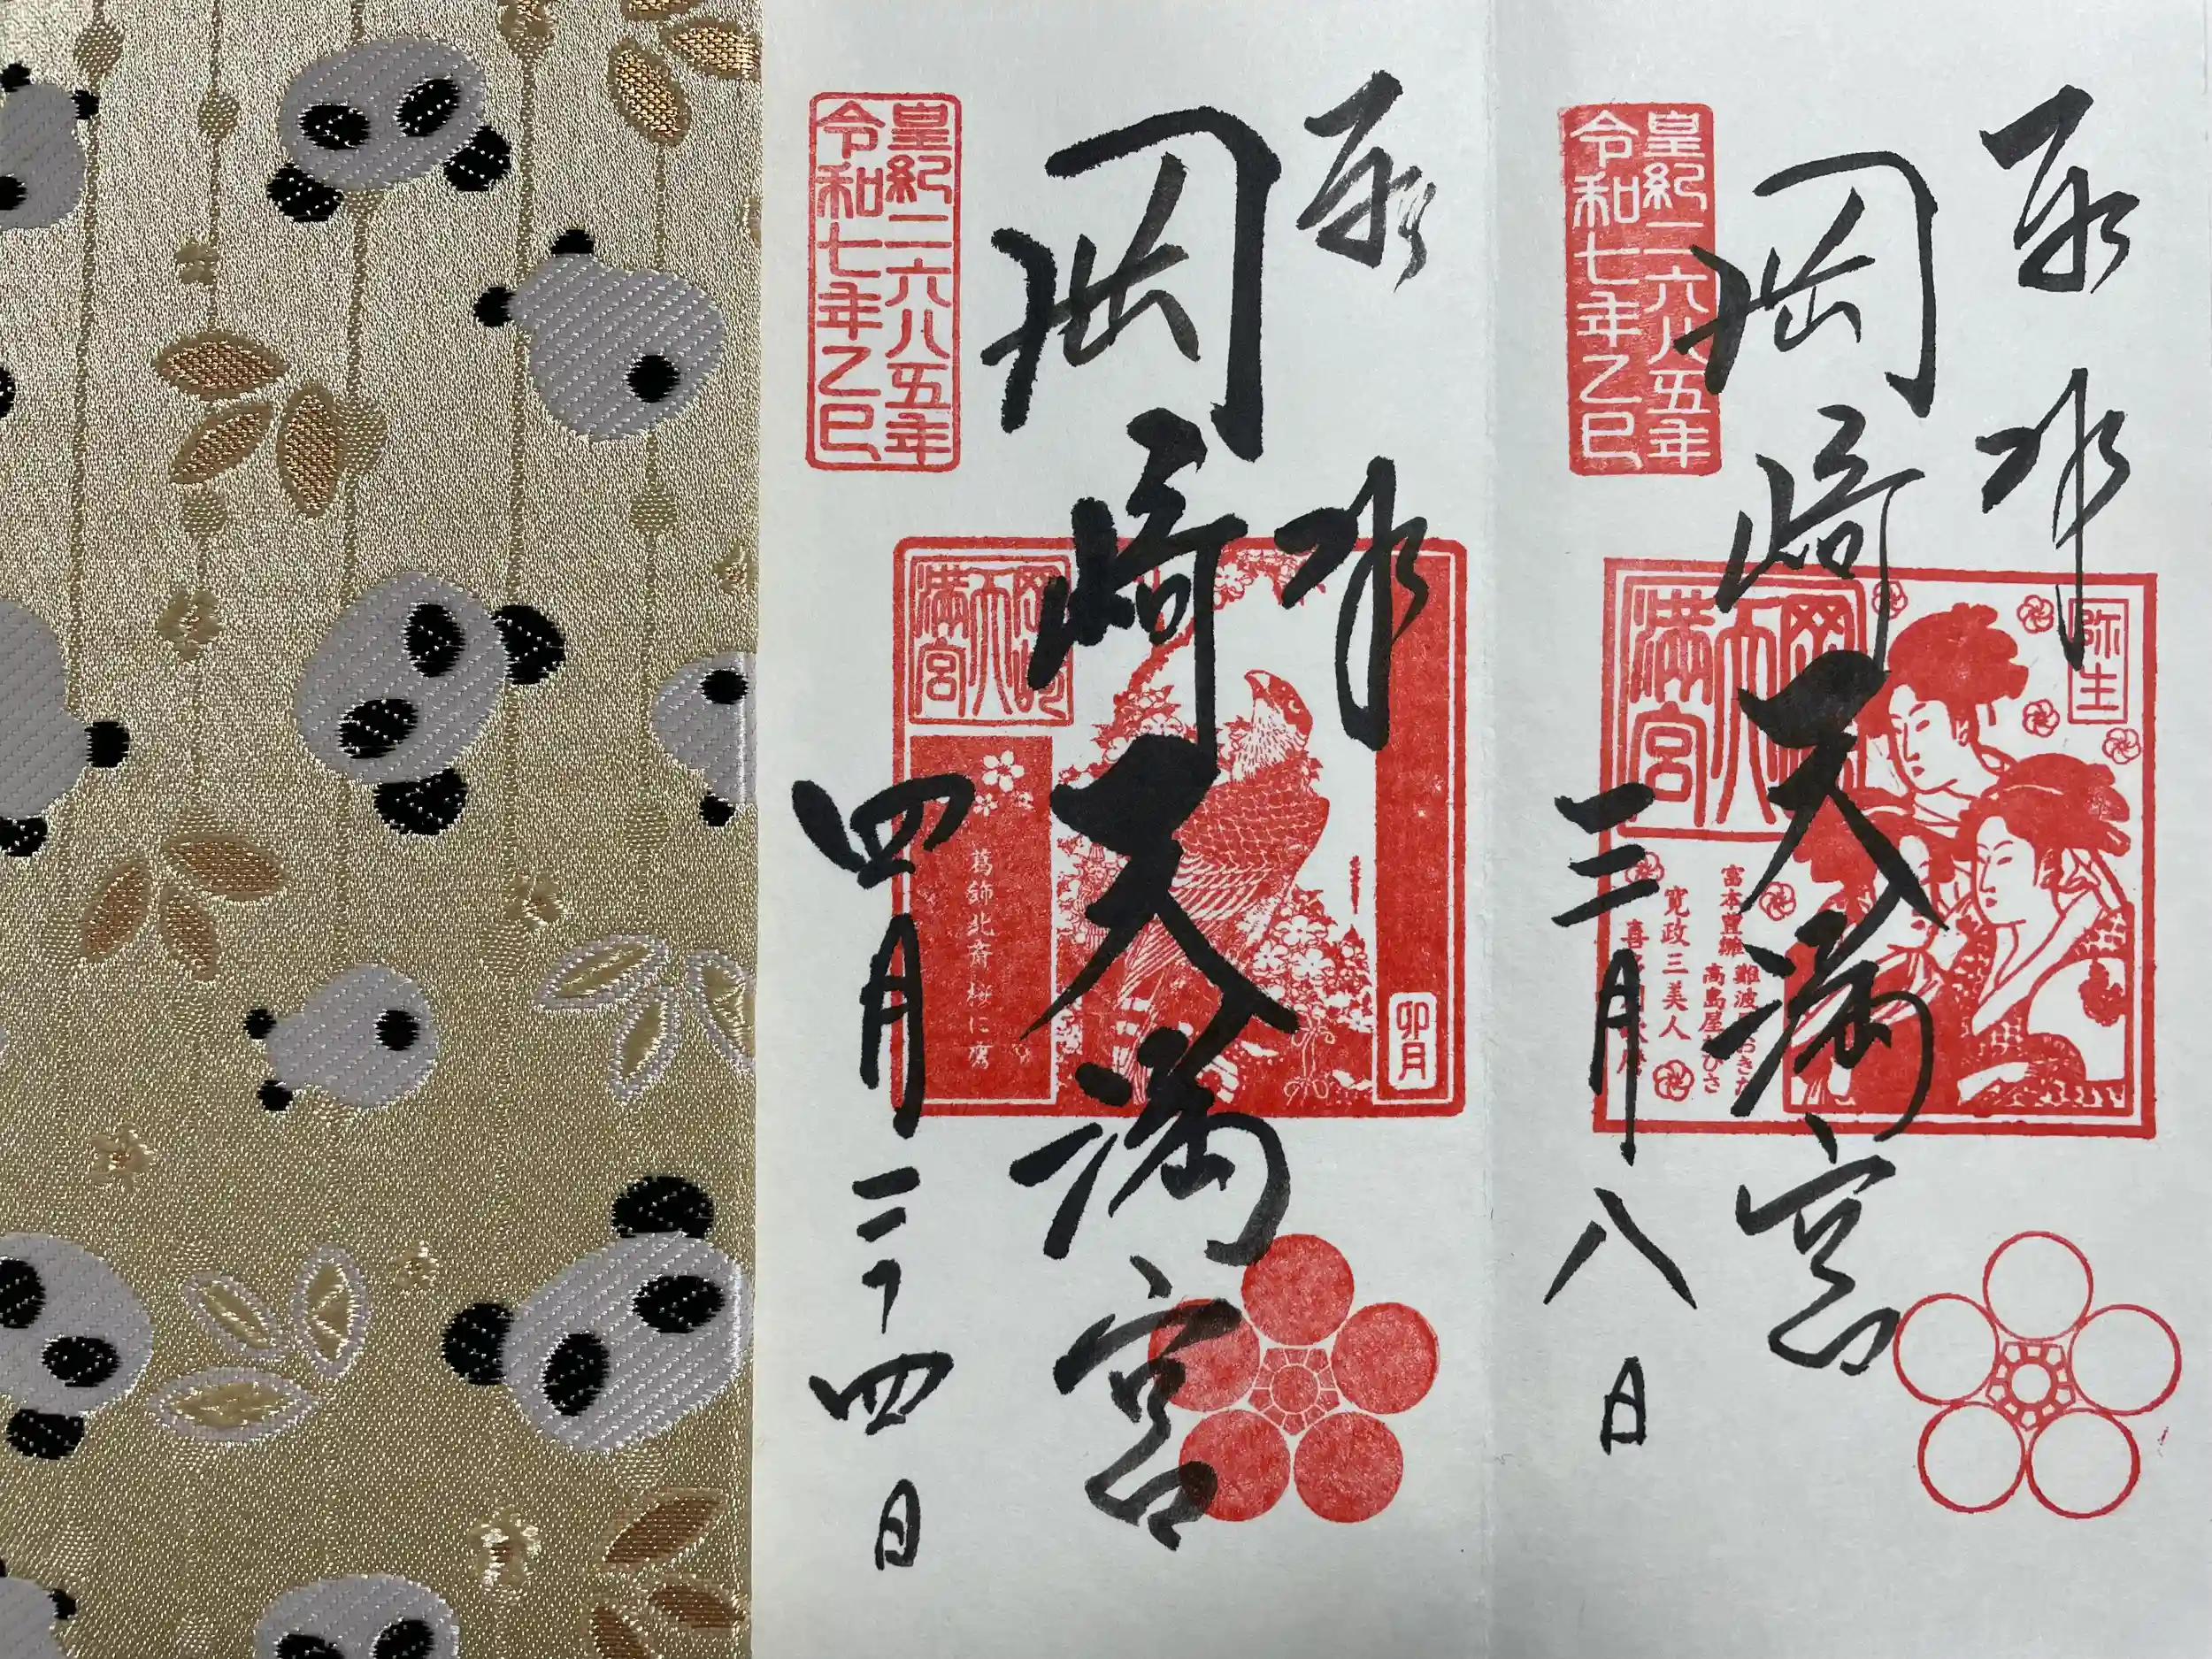 奉拝
岡崎天満宮
三月八日
皇紀二六八五年
令和七年乙巳
弥生
岡崎
天
満宮
富本豊雛
難波屋おきた
高島屋おひさ
寛政三美人
奉拝
岡崎天満宮
四月二十四日
皇紀二六八五年
令和七年乙巳
岡崎
天
満宮
葛飾北斎 桜に鷹
卯月